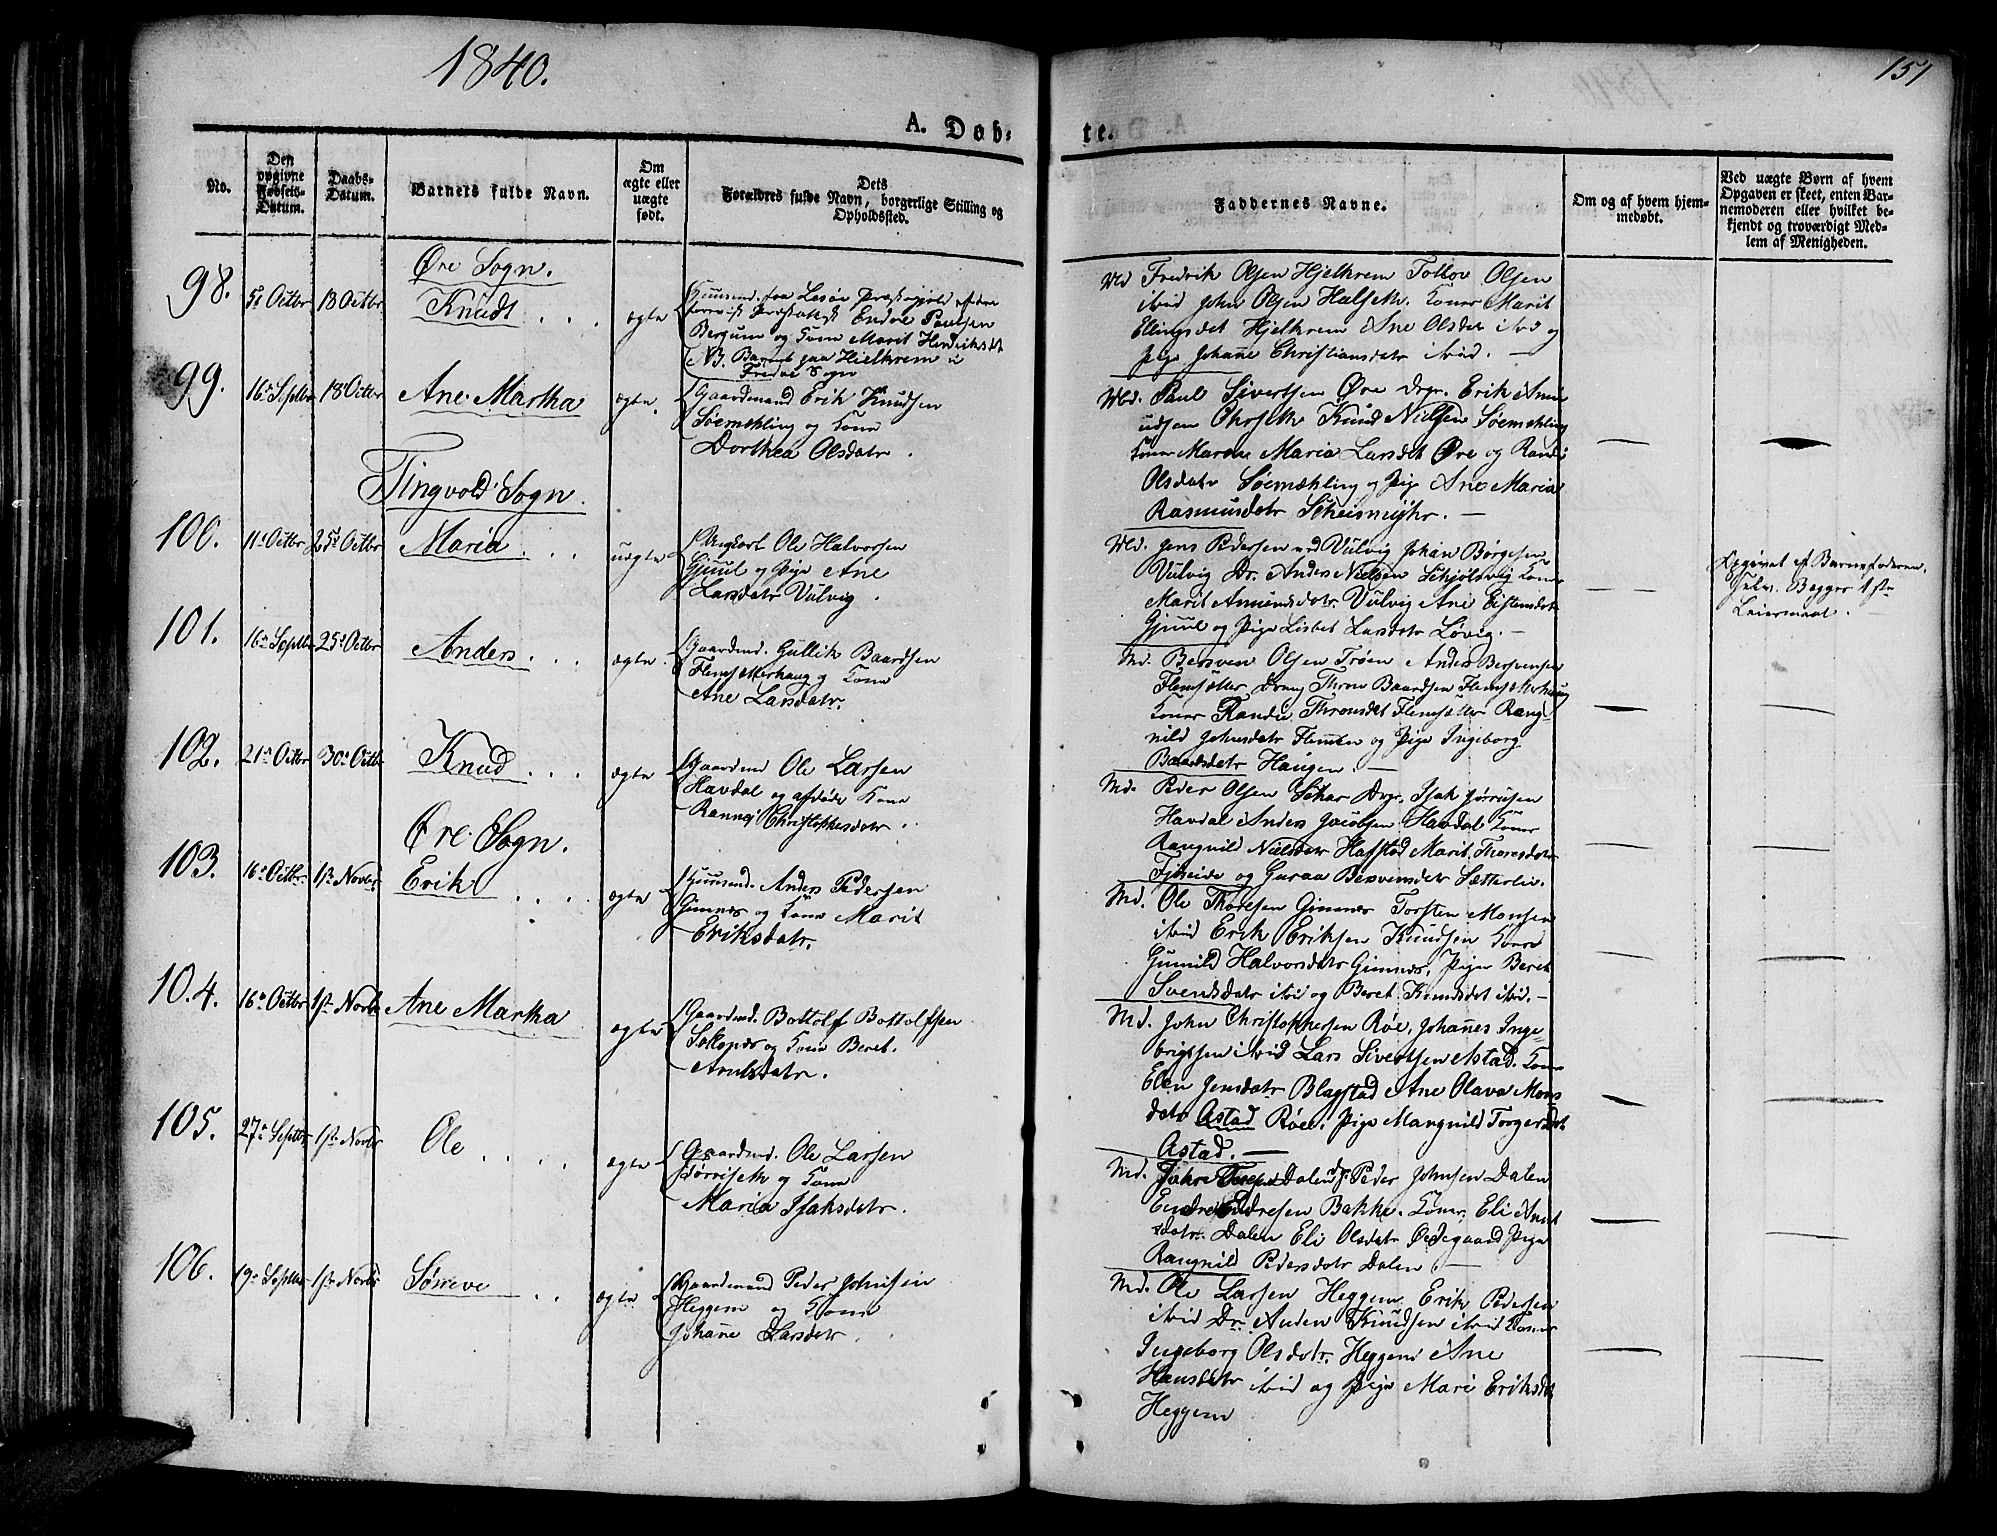 1840.
151
A. Døb-
te.
No.
Den
opgivne
Fødsels-
Datum.
Daabs-
Datum.
Barnets fulde Navn.
Om
ægte eller
uægte
født.
Dets
Forældres fulde Navn, borgerlige Stilling og
Opholdssted.
Faddernes Navne.
Om og af hvem hjem-
medøbt.
Ved uægte Børn af hvem
Opgaven er skeet, enten Bar-
nemoderen eller hvilket be-
kjendt og troværdigt Med-
lem af Menigheden.
Øre Sogn.
98.
5t Octbr
18 Octbr
Knudt
ægte
Endre Paulsen
Bergum og Kone Marit Henriksdt
NB. Barnet paa Hjelkrem i
Fredøe Sogn
Md Fredrik Olsen Hjelkrem Tollov Olsen
ibid John Olsen Halseth. Koner Marit
Ellingsdet Hjelkrem Ane Olsdatr ibid og
Pige Johañe Christiansdatr ibid. —
99.
16 Septbr
18 Octbr
Ane Martha
ægte.
Gaardmand Erik Knudsen
Søemæhling og Kone
Dorthea Olsdatr.
Md. Paul Sivertsen Øre Drgr. Erik Amun
udsen Knud Nielsen Søemæhling
Koner Maren Maria Larsdet Øre og Randi
Olsdatr Søemæhling og Pige Ane Maria
Rasmusdatr
Tingvold Sogn.
100.
11te Octbr
25 Octbr
Maria
uægte
Ungkarl Ole Halvorsen
Gjuul og Pige Ane
Larsdatr Vulvig.
Md. Jens Pedersen Vulvig Johan Børgesen
Vulvig Dr. Anders Nielsen Schjølsvig Koner
Marit Amundsdatr. Vulvig Ane Eistensdatr
Gjuul og Pige Lisbet Larsdatr Løvig. —
Opgivet af Barnefaderen
Selv. Begges 1ste
Leiermaal.
101.
16 Septbr
25 Octbr
Anders
ægte
Gaardmd. Gullik Baardsen
Flemsætterhaug og Kone
Ane Larsdatr.
Md. Bersven Olsen Trøen Anders Bersvensen
Flemsætter Dreng Thron Baardsen Flemsætterhaug
Koner Randie Thronsdet Flemsætter Rang-
nild Johnsdatr Flemmen og Pige Ingeborg
Baardsdatr Haugen. —
102.
21 Octbr
30 Octbr
Knud
ægte
Gaardmd Ole Larsen
Havdal og afdøde Kone
Rannei Christophersdatr.
Md. Peder Olsen Schar Drgr. Isak Jørrisen
Havdal Anders Jacobsen Havdal Koner
Rangnild Nielsdatr Hafstad Marit Thoresdatr
Fjeseide og Guraa Bersvensdatr Sætterlie.
Øre Sogn.
103.
16 Octbr
1st Novbr
Erik
ægte
Huusmd. Anders Pedersen
Gimnes og Kone Marit
Eriksdatr.
Md. Ole Thoresen Gimnes Torsten Monsen
ibid Erik Eriksen Knudsen Kone
Gunild Halvorsdatr Gimnes, Pige Beret
Svensdatr ibid og Beret Knudsdet ibid. —
104.
16 Octbr
1st Novbr
Ane Martha
ægte
Gaardmd. Bottolf Bottolfsen
og Kone Beret.
Arntsdatr.
Md. John Christophersen Røe, Johañes Inge-
brigtsen ibid Lars Sivertsen Astad. Koner
Elen Jensdatr Blagstad Ane Olava Mons
datr Astad Røe: Pige Mangnild Torgersdat.
Astad. —
105.
27 Septbr
1st Novbr
Ole
ægte
Gaardmd. Ole Larsen
Jørriseth og Kone
Maria Isaksdatr.
Md. Dalen Dr. Peder Johnsen Dalen
Endre Endresen Bakke. Koner. Eli Arnt
sdatr. Dalen Eli Olsdatr Ødegaard Pige
Rangnild Pedersdatr Dalen. —
106.
19 Septbr
1st Novbr
Sørreve
ægte
Gaardmand Peder Johnsen
Heggem og Kone
Johañe Larsdatr.
Md. Ole Larsen Heggem Erik Pedersen
ibid Dr. Auden Knudsen ibid Koner
Ingeborg Olsdatr. Heggem Ane
Hansdatr ibid og Pige Mari Eriksdt
Heggem